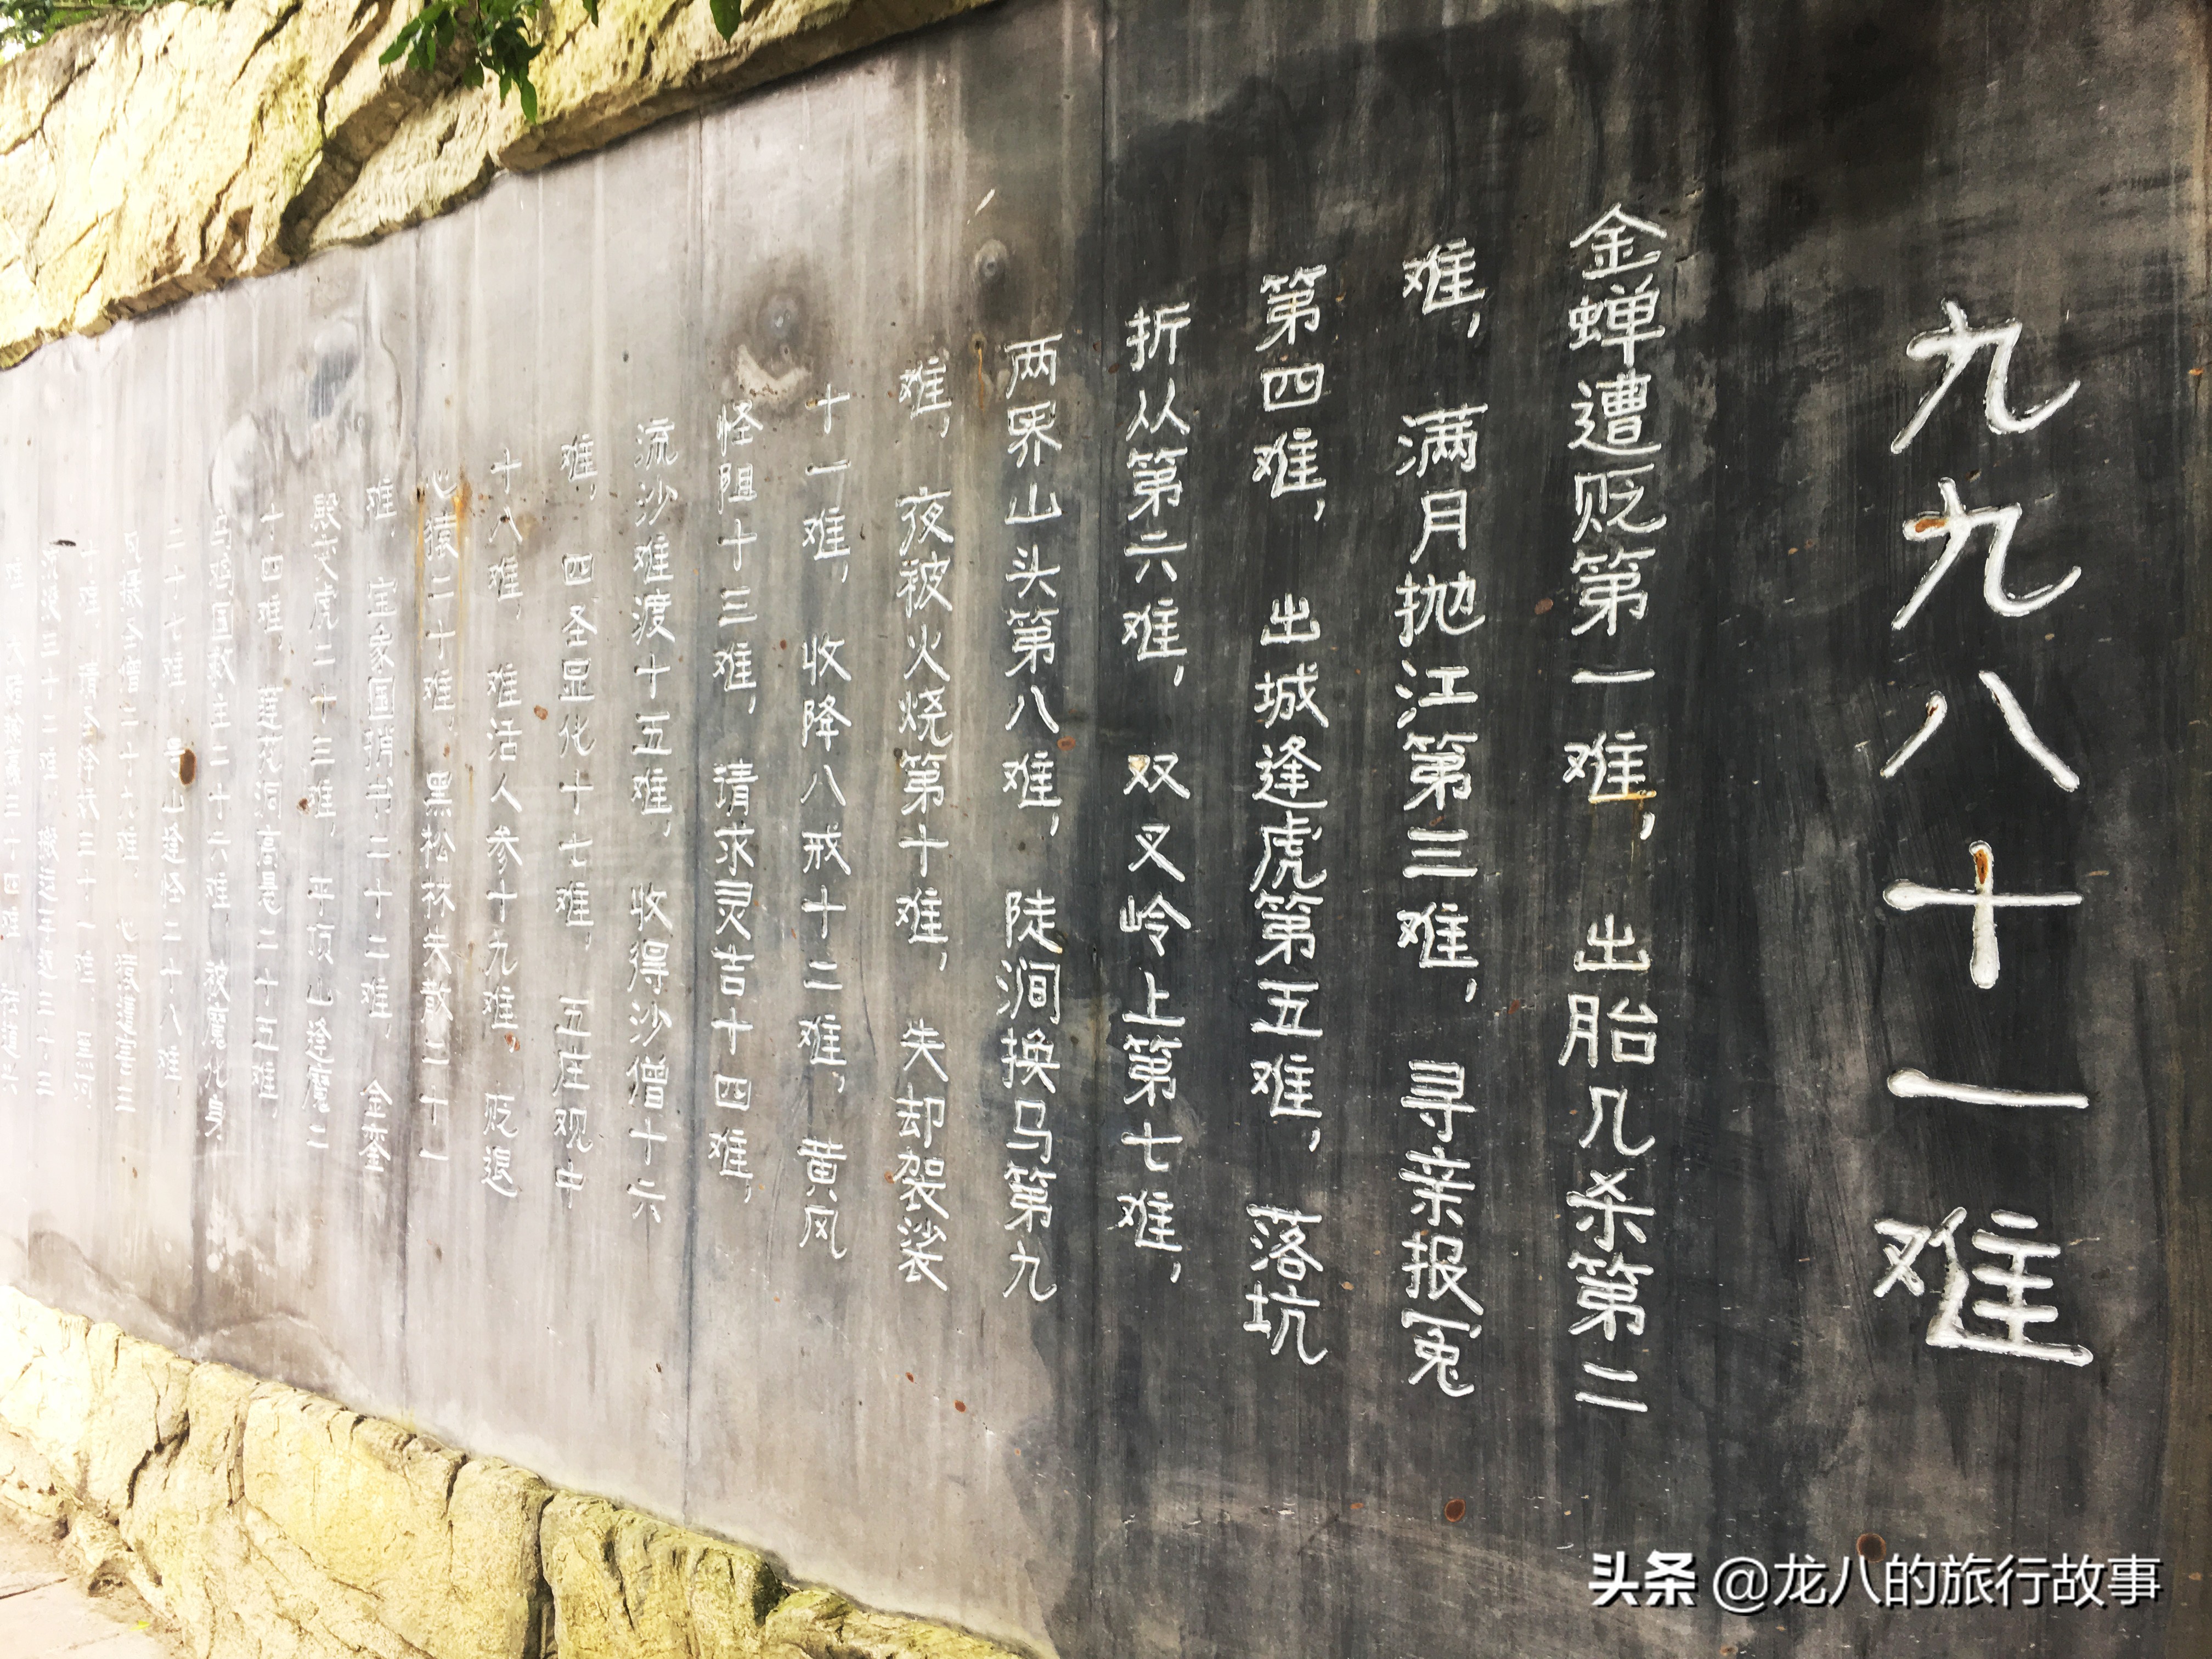 九九八十一难
金蝉遭贬第一难，出胎几杀第二
难，满月抛江第三难，寻亲报冤
第四难，出城逢虎第五难，落坑
折从第六难，双叉岭上第七难，
两界山头第八难，陡涧换马第九
难，夜被火烧第十难，失却袈裟
十一难，收降八戒十二难，黄风
怪阻十三难，请求灵吉十四难，
流沙难渡十五难，收得沙僧十六
难，四圣显化十七难，五庄观中
十八难，难活人参十九难，贬退
心猿二十难，黑松林失散二十一
难，宝象国捎书二十二难，金銮
殿变虎二十三难，平顶山逢魔二
十四难，莲花洞高悬二十五难，
乌鸡国救主二十六难，被魔化身
二十七难，号山逢怪二十八难，
风摄圣僧二十九难，
三十一难，黑河
三十二难，
头条 @龙八的旅行故事